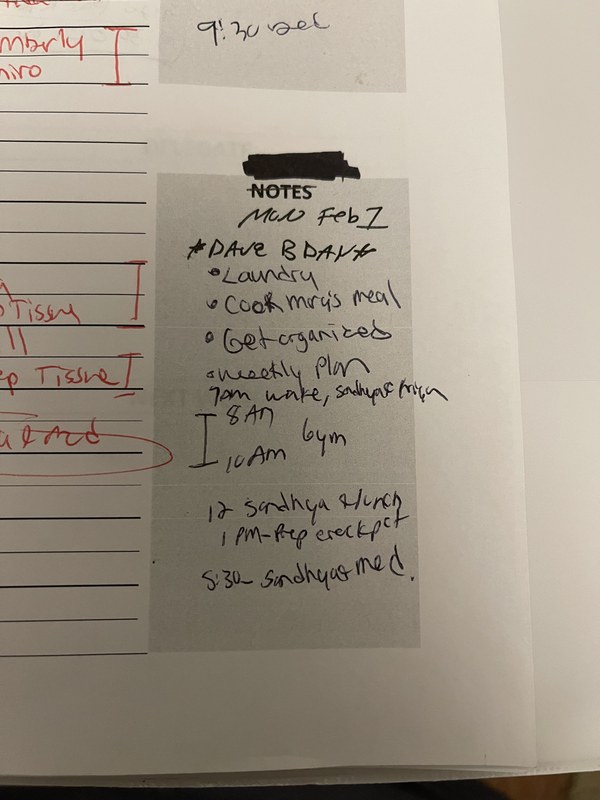 mberly
niro
9:30
NOTES
Mon Feb 1
*DAVE BDAY*
• Laundry
• Cook mrg's meal
• Get organized
• weekly plan
7am wake, sandhya &
8 AM
Gym
10 AM
12 sandhya & lunch
1 PM - Prep crockpot
5:30 - sandhya & med.
Tissu
ll
ep Tissue